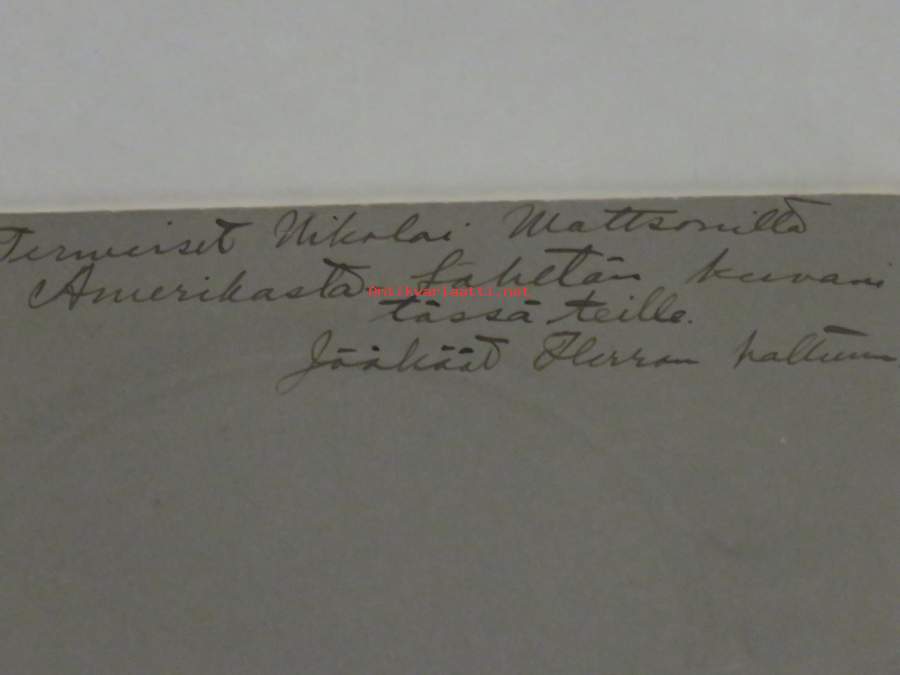 Terveiset Nikolai Mattsonilta
Amerikasta lähetän kuvani
Antikvariaatti.net
tässä teille.
Jääkäät Herran haltuun